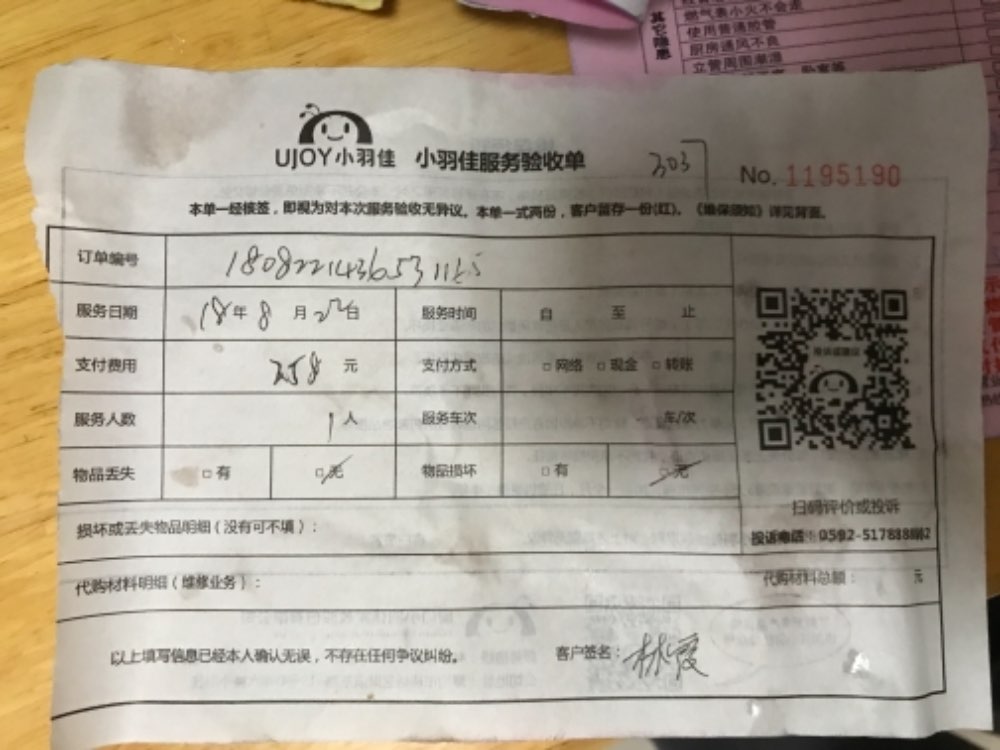 其它隐患
燃气表小火不会走
使用普通胶管
厨房通风不良
立管周围潮湿
UJOY小羽佳 小羽佳服务验收单 303
No. 1195190
本单一经核签，即视为对本次服务验收无异议。本单一式两份，客户留存一份(红)。《维保须知》详见背面。
订单编号
服务日期 18年8月 日 服务时间 自 至 止
支付费用 258 元 支付方式 □网络 □现金 □转账
服务人数 1人 服务车次 车/次
物品丢失 □有 □无 物品损坏 □有 □无
扫码评价或投诉
损坏或丢失物品明细（没有可不填）：
投诉电话：0592-5178888
代购材料明细（维修业务）： 代购材料总额： 元
以上填写信息已经本人确认无误，不存在任何争议纠纷。 客户签名：